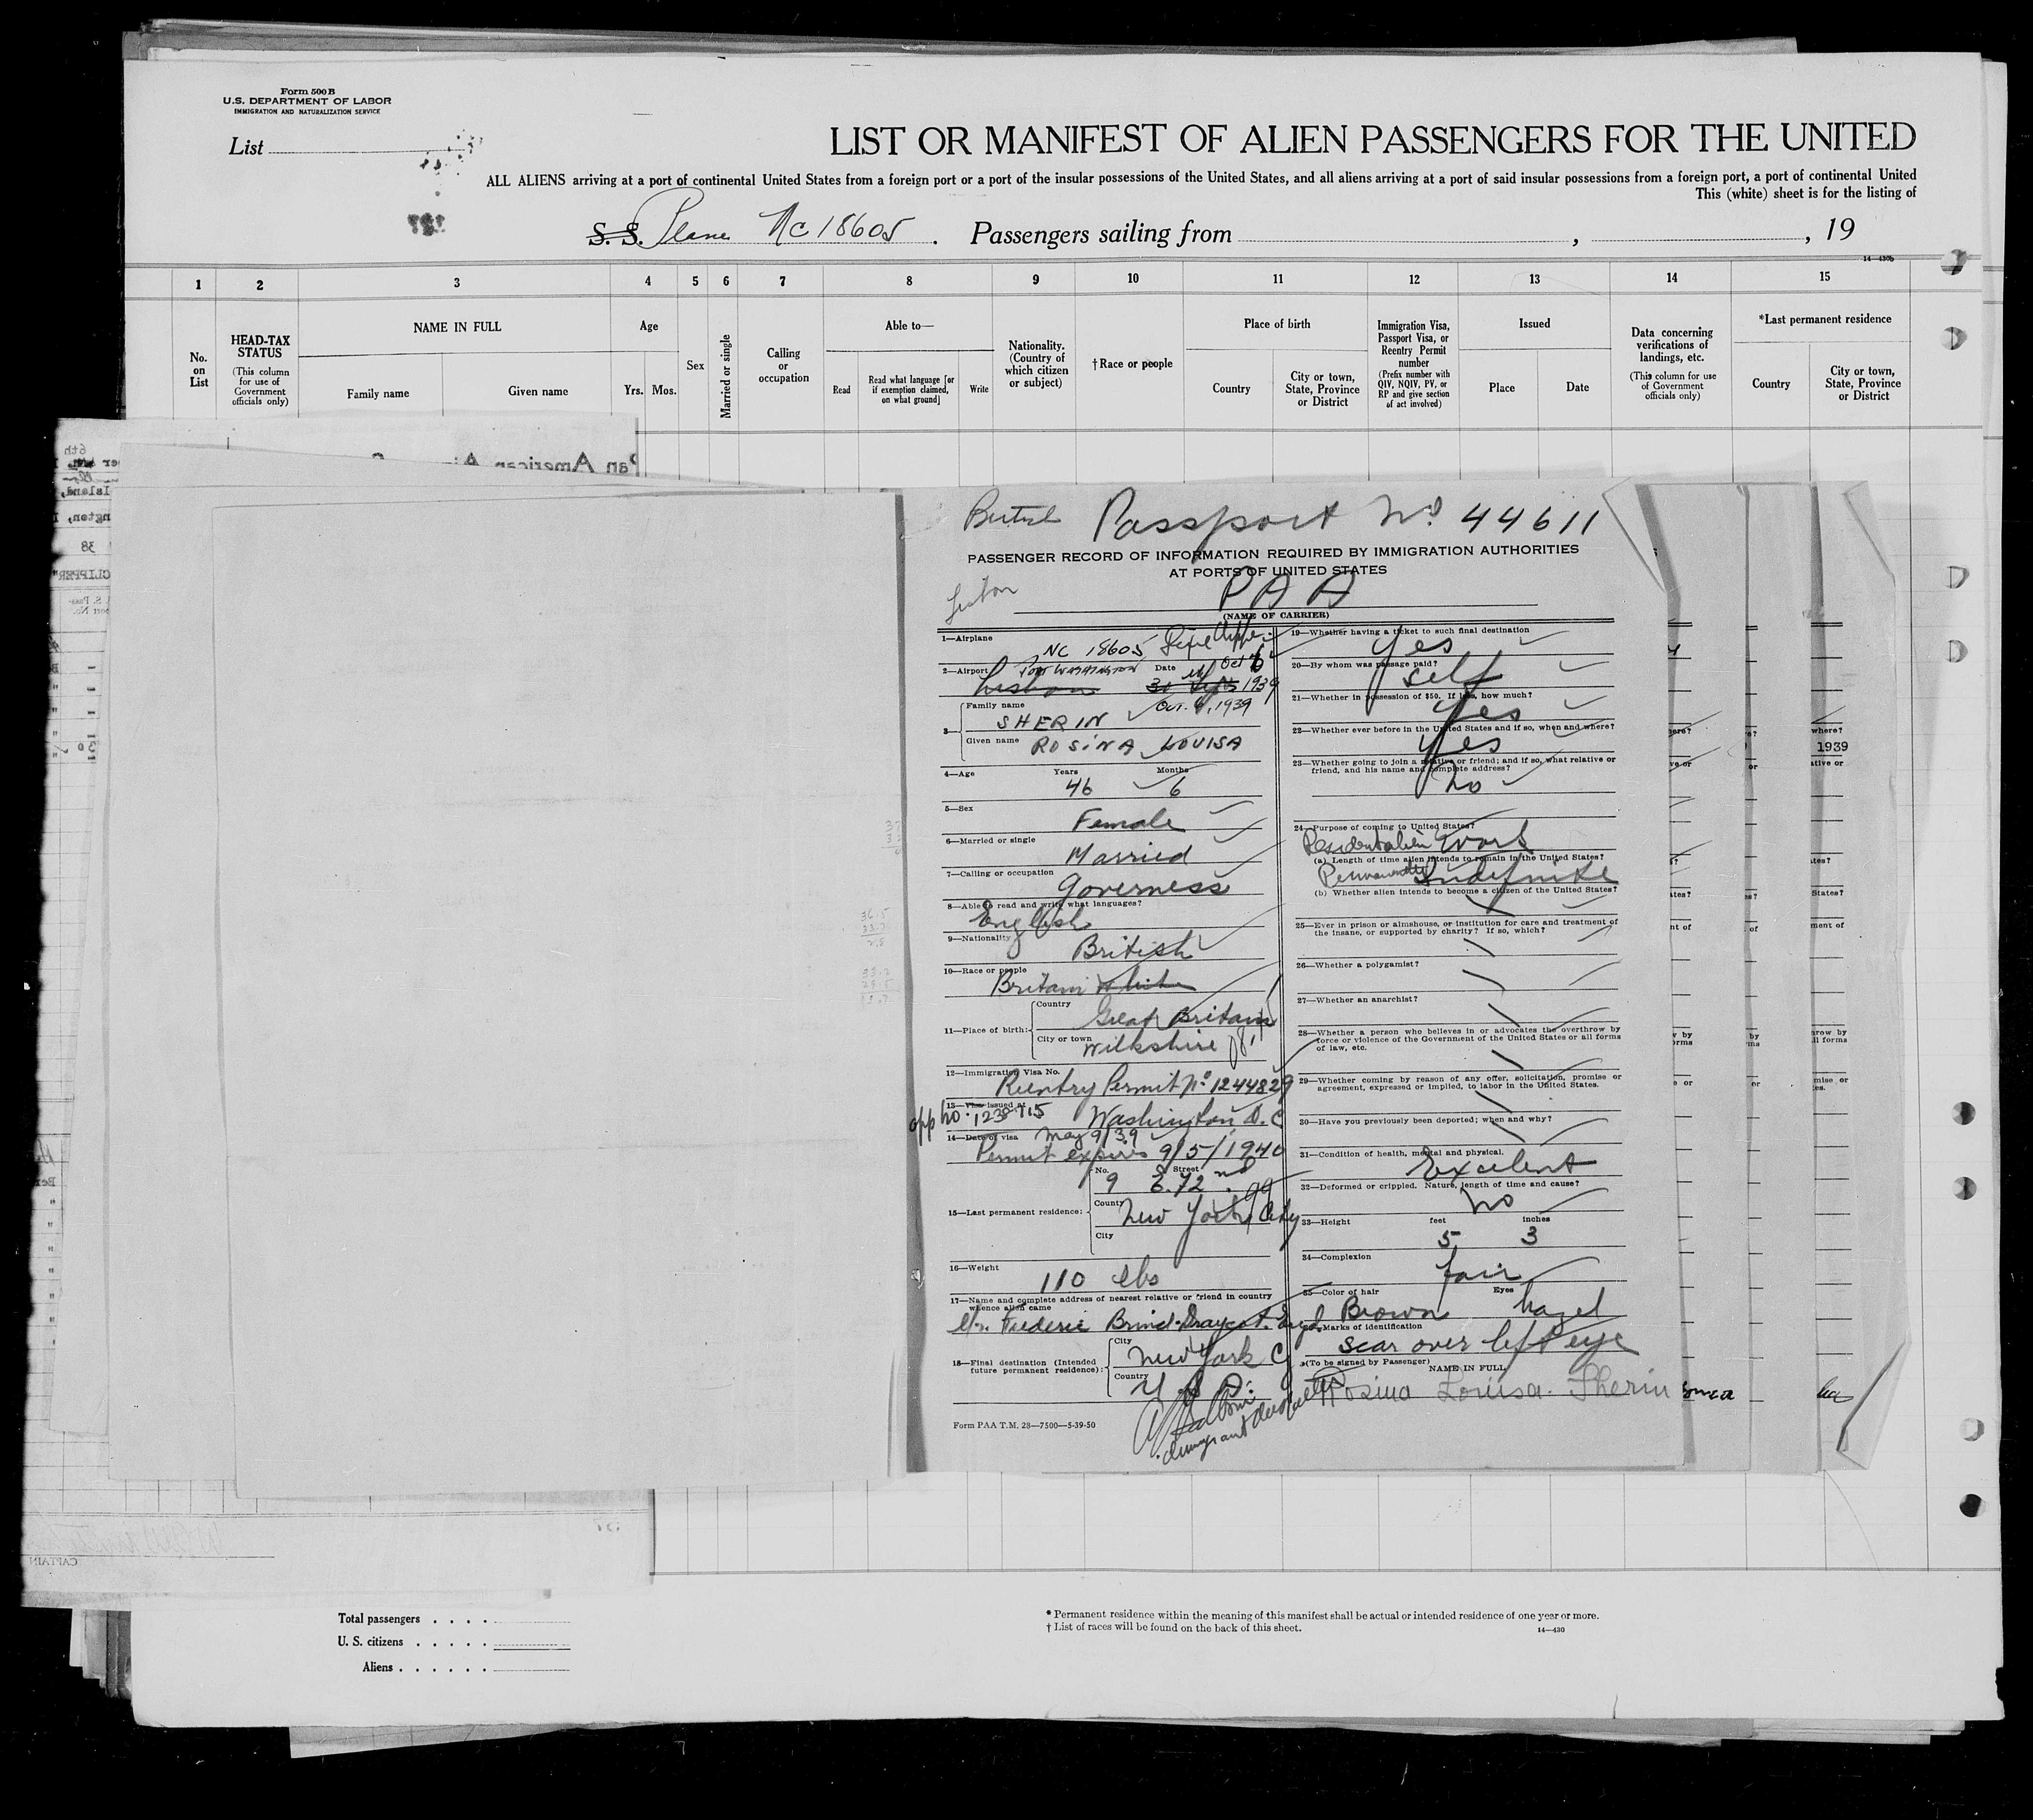 Form 500 B
U.S. DEPARTMENT OF LABOR
IMMIGRATION AND NATURALIZATION SERVICE
List
LIST OR MANIFEST OF ALIEN PASSENGERS FOR THE UNITED
ALL ALIENS arriving at a port of continental United States from a foreign port or a port of the insular possessions of the United States, and all aliens arriving at a port of said insular possessions from a foreign port, a port of continental United
This (white) sheet is for the listing of
S. S. Plane NC 18605. Passengers sailing from , , 19
14—430b
1 2 3 4 5 6 7 8 9 10 11 12 13 14 15
No. on List
HEAD-TAX STATUS
(This column for use of Government officials only)
NAME IN FULL
Family name Given name
Age
Yrs. Mos.
Sex
Married or single
Calling or occupation
Able to—
Read
Read what language [or if exemption claimed, on what ground]
Write
Nationality. (Country of which citizen or subject)
†Race or people
Place of birth
Country
City or town, State, Province or District
Immigration Visa, Passport Visa, or Reentry Permit number
(Prefix number with QIV, NQIV, PV, or RP and give section of act involved)
Issued
Place Date
Data concerning verifications of landings, etc.
(This column for use of Government officials only)
*Last permanent residence
Country
City or town, State, Province or District
Pan American
British Passport No 44611
PASSENGER RECORD OF INFORMATION REQUIRED BY IMMIGRATION AUTHORITIES
AT PORTS OF UNITED STATES
PAA
(NAME OF CARRIER)
1—Airplane NC 18605 Clipper
2—Airport Port Washington Date Oct 6
Lisbon 1939
3— Family name SHERIN Oct. 1939
Given name ROSINA LOUISA
4—Age Years 46 Months 6
5—Sex Female
6—Married or single Married
7—Calling or occupation Governess
8—Able to read and write what languages?
English
9—Nationality British
10—Race or people
Britain White
11—Place of birth: Country Great Britain
City or town Wilkshire
12—Immigration Visa No.
Reentry Permit No 1244829
13—Visa issued at Washington, D. C
app no.
14—Date of visa May 9/39
Permit expires 9/5/1940
15—Last permanent residence: No. 9 Street E. 72 nd
County New York City
City
16—Weight 110 lbs
17—Name and complete address of nearest relative or friend in country whence alien came
Frederic
18—Final destination (Intended future permanent residence): City New York C
Country U. S. A.
Form PAA T.M. 28—7500—5-39-50
19—Whether having a ticket to such final destination
Yes
20—By whom was passage paid?
self
21—Whether in possession of $50. If less, how much?
Yes
22—Whether ever before in the United States and if so, when and where?
Yes
23—Whether going to join a relative or friend; and if so, what relative or friend, and his name and complete address?
no
24—Purpose of coming to United States?
Resident alien Work
(a) Length of time alien intends to remain in the United States?
Permanently Indefinite
(b) Whether alien intends to become a citizen of the United States?
25—Ever in prison or almshouse, or institution for care and treatment of the insane, or supported by charity? If so, which?
26—Whether a polygamist?
27—Whether an anarchist?
28—Whether a person who believes in or advocates the overthrow by force or violence of the Government of the United States or all forms of law, etc.
29—Whether coming by reason of any offer, solicitation, promise or agreement, expressed or implied, to labor in the United States.
30—Have you previously been deported; when and why?
31—Condition of health, mental and physical.
Excelent
32—Deformed or crippled. Nature, length of time and cause?
no
33—Height feet 5 inches 3
34—Complexion
fair
35—Color of hair Brown Eyes hazel
Marks of identification
scar over left eye
(To be signed by Passenger) NAME IN FULL
Rosina Louisa Sherin
1939
Total passengers
U. S. citizens
Aliens
* Permanent residence within the meaning of this manifest shall be actual or intended residence of one year or more.
† List of races will be found on the back of this sheet.
14—430